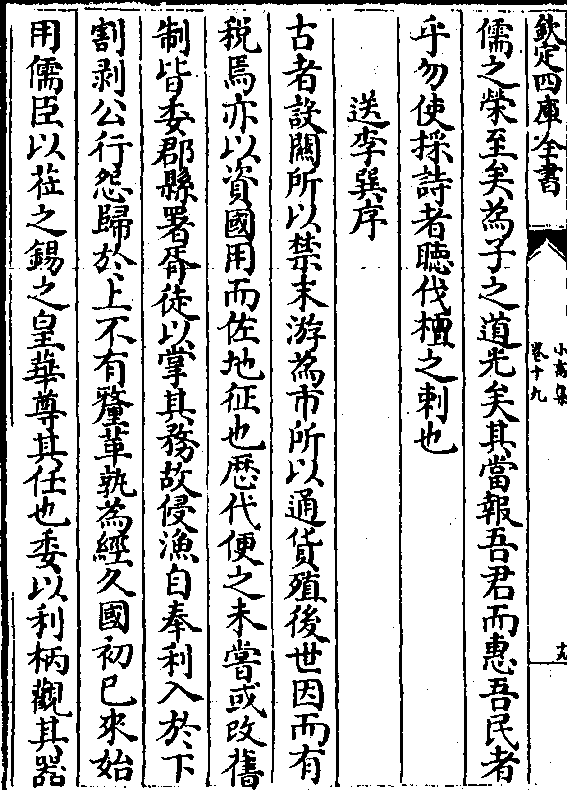 欽定四庫全書
小畜集
卷十九
儒之榮至矣為子之道光矣其當報吾君而惠吾民者
乎勿使採詩者聽伐檀之刺也
送李巽序
古者設關所以禁末游為市所以通貨殖後世因而有
稅焉亦以資國用而佐地征也歷代便之未嘗或改舊
制皆委郡縣署胥徒以掌其務故侵漁自奉利入於下
割剥公行怨歸於上不有釐革孰為經久國初已來始
用儒臣以莅之錫之皇華尊其任也委以利柄觀其器